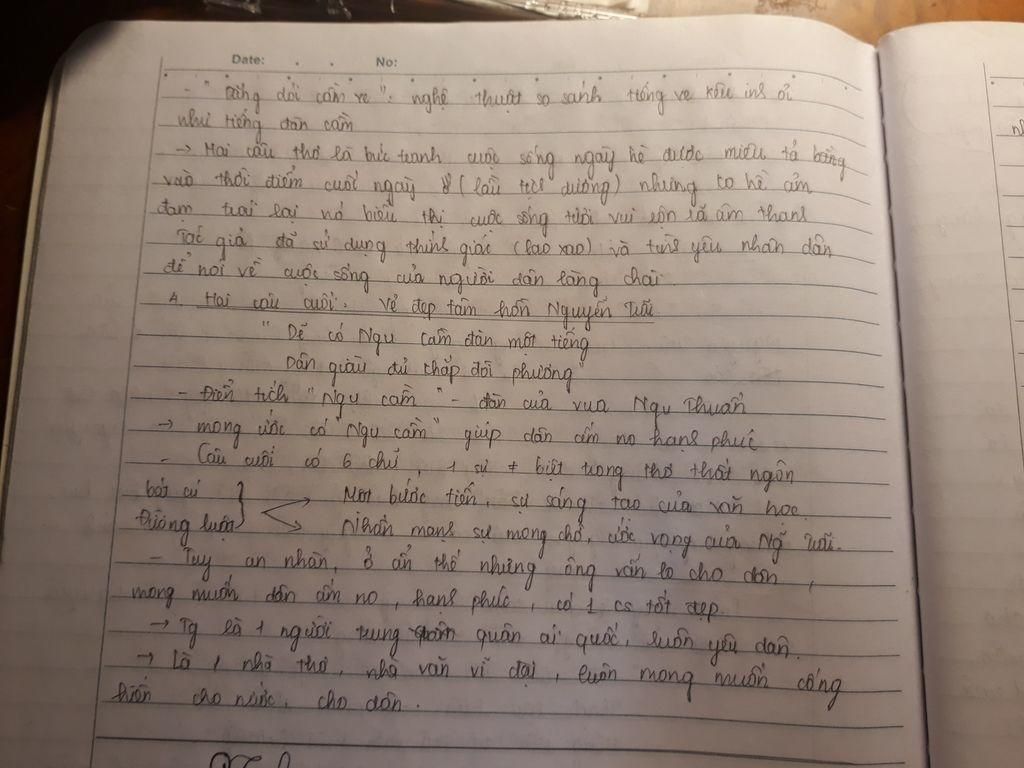 Date: . . No:
- "dắng dỏi cầm ve": nghệ thuật so sánh tiếng ve kêu inh ỏi
như tiếng đàn cầm
→ Hai câu thơ là bức tranh cuộc sống ngày hè được miêu tả bằng
vào thời điểm cuối ngày (lầu tịch dương) nhưng ko hề ảm
đạm trái lại nó biểu thị cuộc sống tươi vui rộn rã âm thanh
Tác giả đã sử dụng thính giác (lao xao) và tình yêu nhân dân
để nói về cuộc sống của người dân làng chài.
4. Hai câu cuối. Vẻ đẹp tâm hồn Nguyễn Trãi
"Dẽ có Ngu cầm đàn một tiếng
Dân giàu đủ khắp đòi phương"
- Điển tích "Ngu cầm" - đàn của vua Ngu Thuấn
→ mong ước có "Ngu cầm" giúp dân ấm no hạnh phúc
- Câu cuối có 6 chữ, 1 sự ≠ biệt trong thơ thất ngôn
bát cú } Một bước tiến, sự sáng tạo của văn học
Đường luật Nhấn mạnh sự mong chờ, ước vọng của Ng~ Trãi.
- Tuy an nhàn, ở ẩn thế nhưng ông vẫn lo cho dân,
mong muốn dân ấm no, hạnh phúc, có 1 cs tốt đẹp
→ Tg là 1 người trung quân ái quốc, luôn yêu dân.
→ Là 1 nhà thơ, nhà văn vĩ đại, luôn mong muốn cống
hiến cho nước, cho dân.